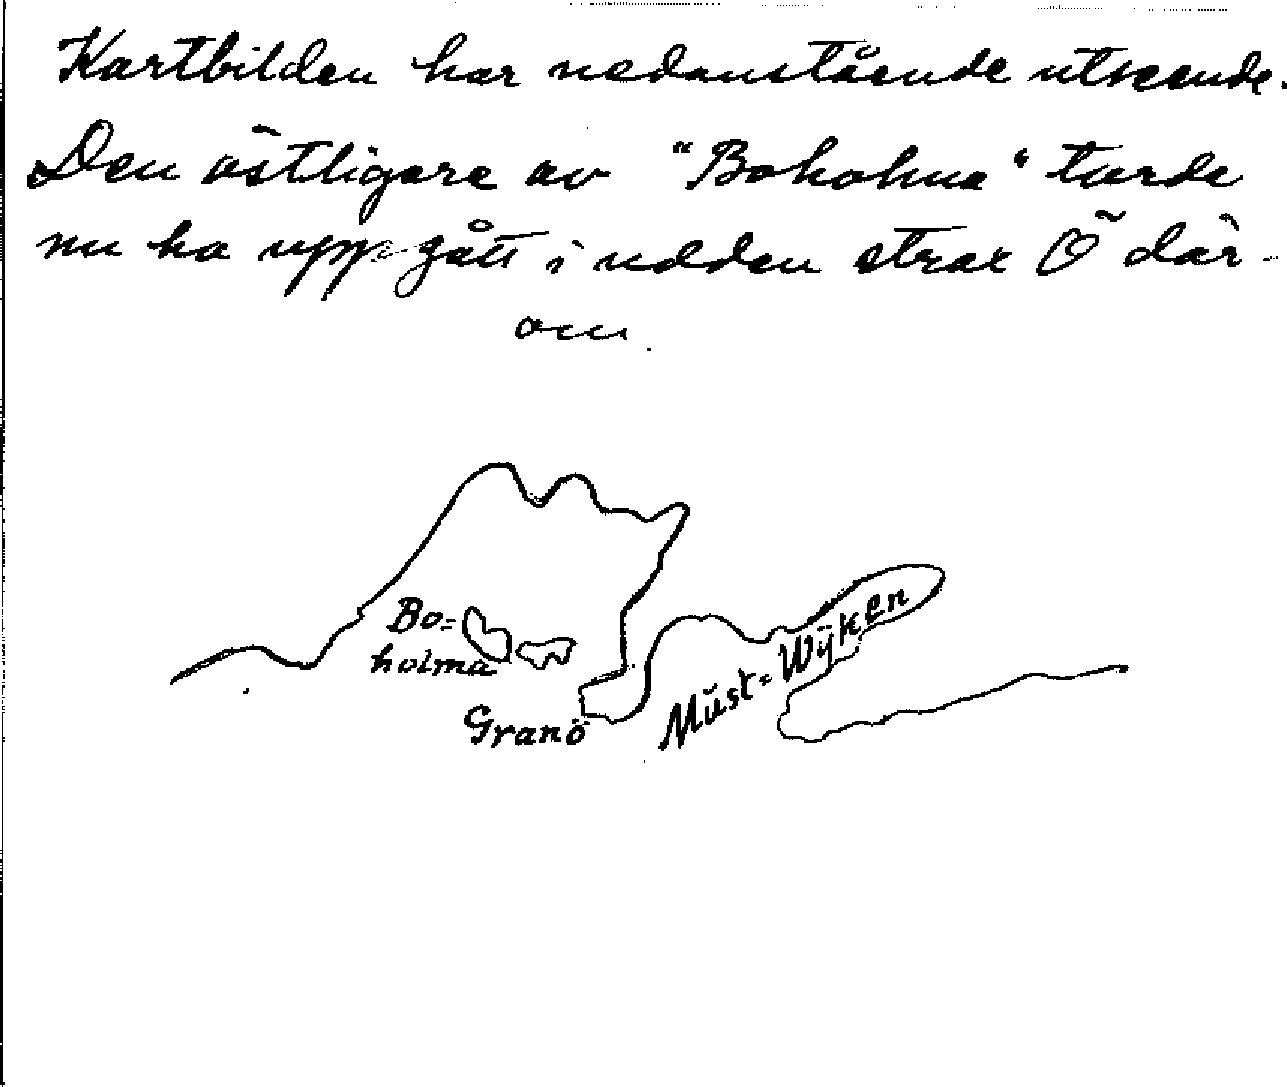 Kartbilden har nedanstående utseende.
Den östligare av "Boholma" torde
nu ha uppgått i udden strax Ö där-
om.
Bo=
holma
Granö
Mŭst=Wÿken